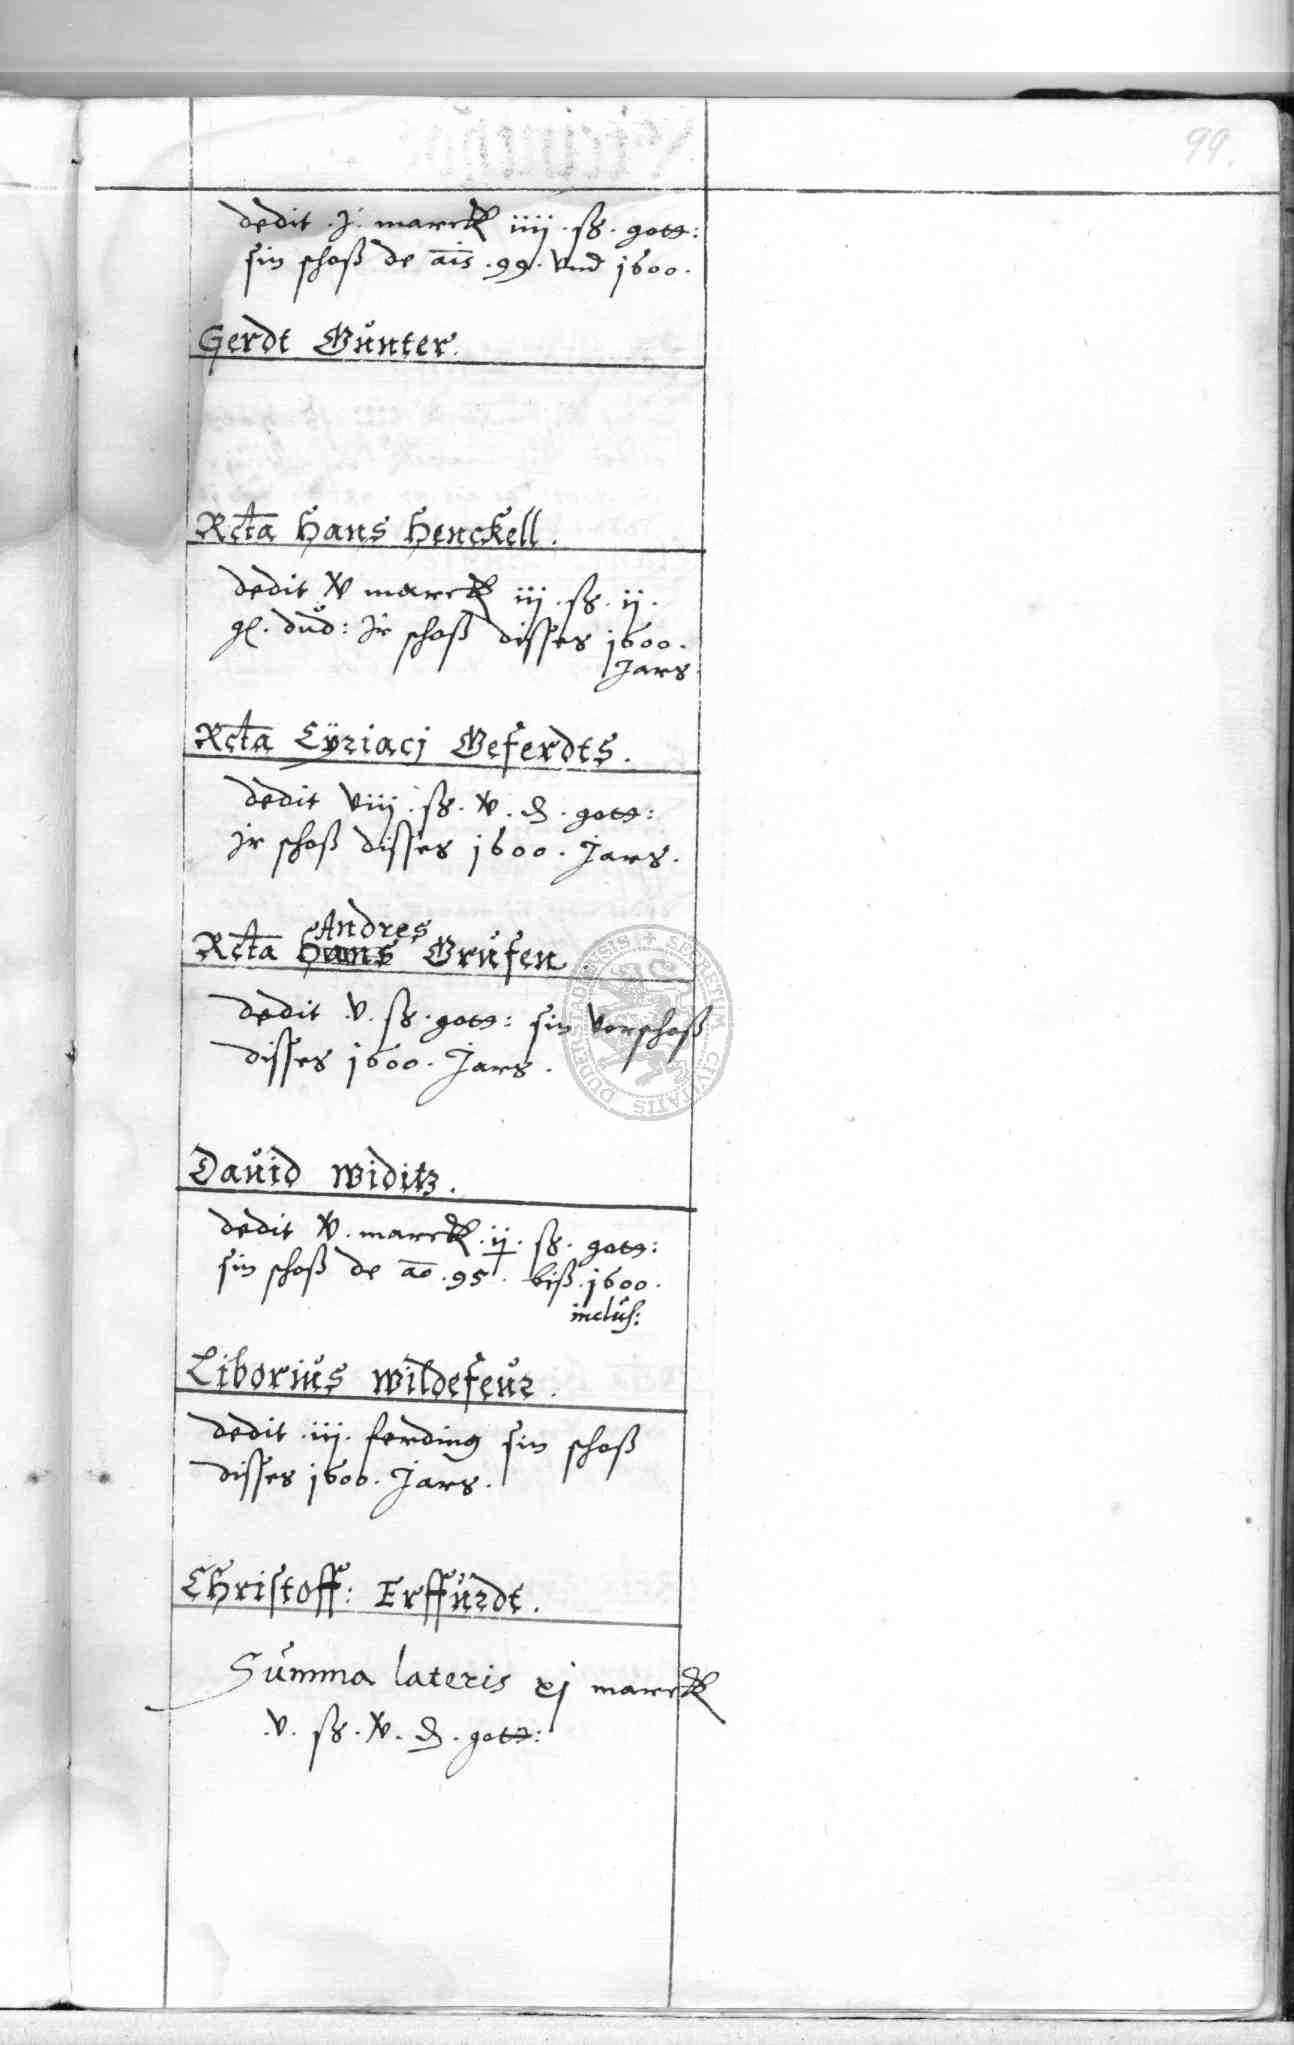 99.
dedit .j. marck iiij .sz. gott:
sin schoß de ais .99. vnd 1600.
Gerdt Günter.
Rcta Hans Henckell.
dedit v marck iij .sz. ij.
gl. dud: Jr schoß disses 1600.
Jars
Rcta Cÿriacj Geferdts.
dedit viij .sz. v. d. gott:
Jr schoß disses 1600. Jars.
Andres
Rcta Hans Grufen.
dedit .v. sz. gott: sin vorschoß
disses 1600. Jars.
David Widitz.
dedit v. marck .ij. sz. gott:
sin schoß de ao .95. biß .1600.
inclus:
Liborius Wildefeur.
dedit .iij. ferding sin schoß
disses 1600. Jars.
Christoff: Erffurdt.
Summa lateris xj marck
.v. sz. v. d. gott:
SECRETUM CIVITATIS DUDERSTADIENSIS